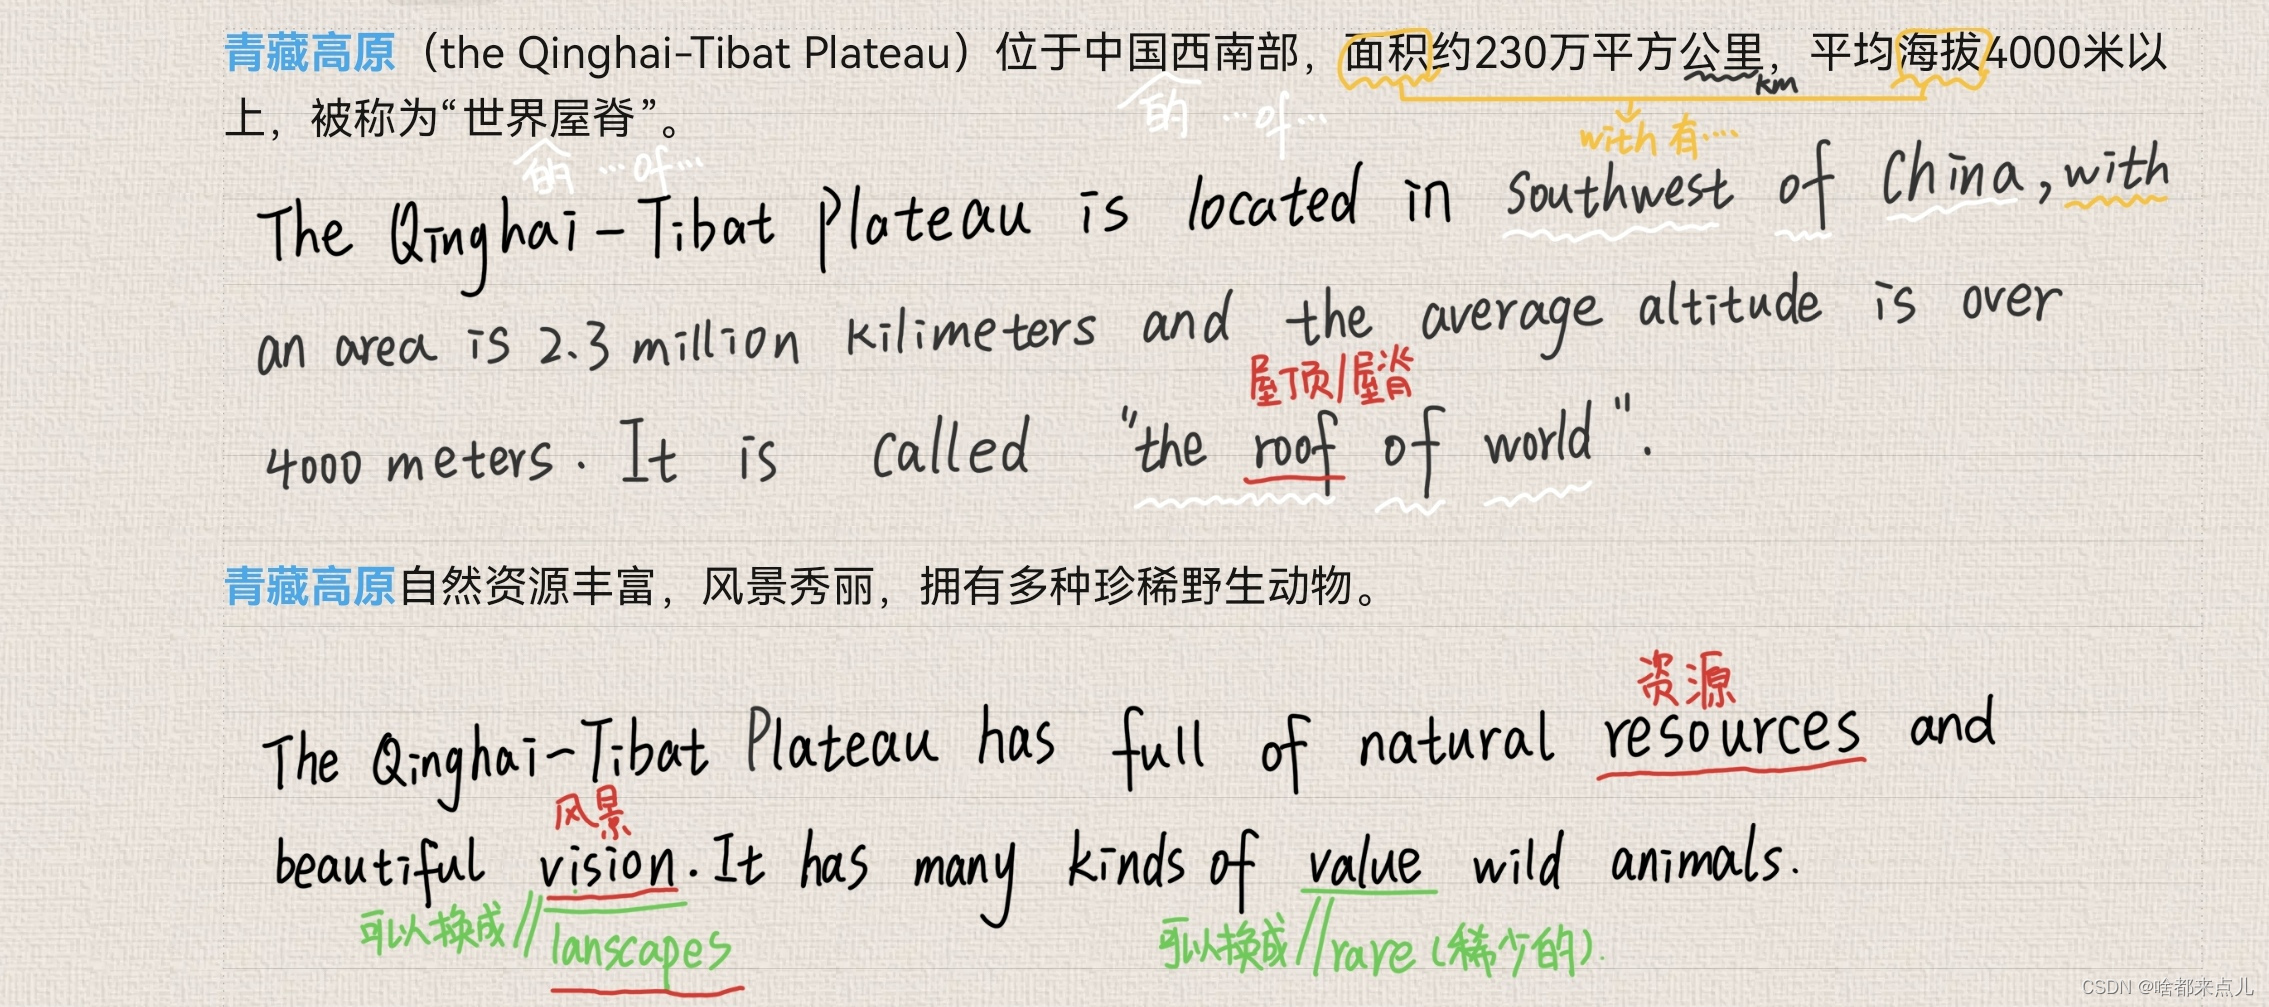 青藏高原（the Qinghai-Tibat Plateau）位于中国西南部，面积约230万平方公里，平均海拔4000米以
km
上，被称为“世界屋脊”。
的 …of…
with 有…
的 …of…
The Qinghai-Tibat Plateau is located in southwest of China, with
an area is 2.3 million kilimeters and the average altitude is over
屋顶/屋脊
4000 meters. It is called "the roof of world".
青藏高原自然资源丰富，风景秀丽，拥有多种珍稀野生动物。
资源
The Qinghai-Tibat Plateau has full of natural resources and
风景
beautiful vision. It has many kinds of value wild animals.
可以换成//lanscapes
可以换成//rare(稀少的).
CSDN @啥都来点儿